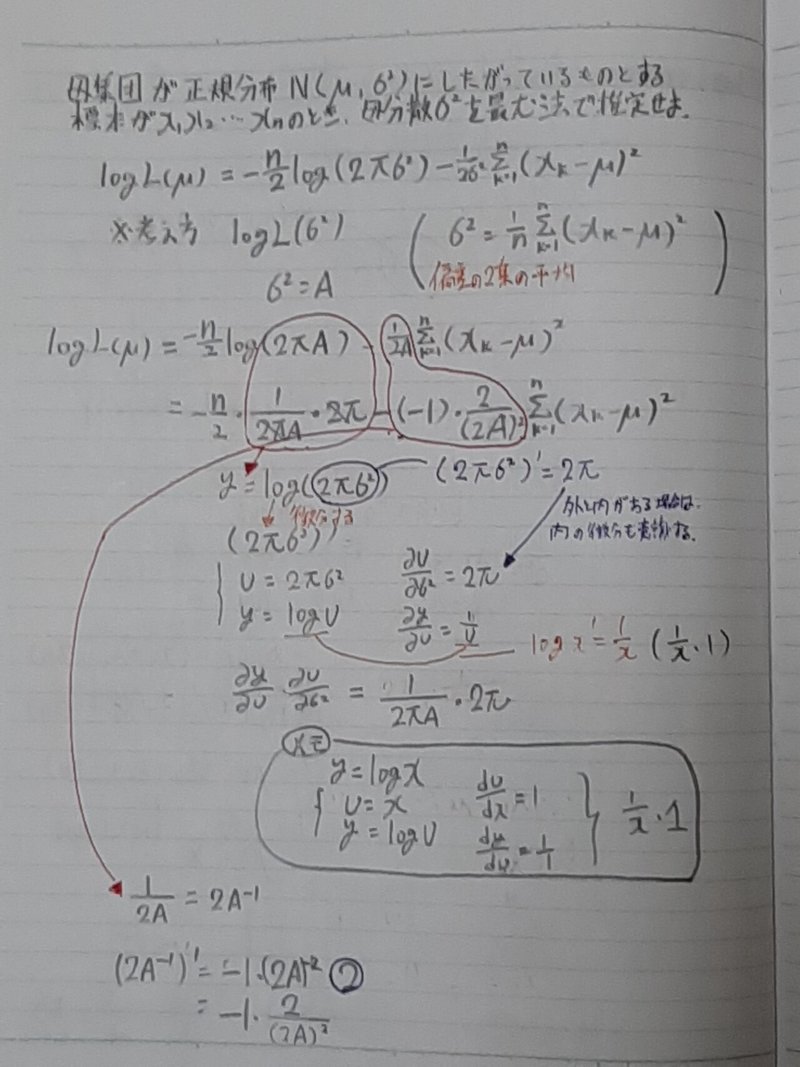 母集団が正規分布 N(μ, σ²)にしたがっているものとする
標本がx₁x₂…xnのとき、母分散σ²を最尤法で推定せよ。
logL(μ) = -n/2 log(2πσ²) - 1/2σ² Σ[k=1,n](xk-μ)²
※考え方 logL(σ²) (σ² = 1/n Σ[k=1,n](xk-μ)²)
σ² = A 偏差の2乗の平均
logL(μ) = -n/2 log(2πA) - 1/2A Σ[k=1,n](xk-μ)²
= -n/2 · 1/2πA · 2π - (-1) · 2/(2A)² Σ[k=1,n](xk-μ)²
y = log(2πσ²) (2πσ²)' = 2π
微分する
外と内がある場合は、
内の微分も意識する。
(2πσ²)'
U = 2πσ² ∂U/∂σ² = 2π
y = logU ∂y/∂U = 1/U logx' = 1/x (1/x · 1)
∂y/∂U · ∂U/∂σ² = 1/2πA · 2π
メモ
y = logx
U = x du/dx = 1
y = logU 1/x · 1
1/2A = 2A⁻¹
(2A⁻¹)' = -1·(2A)⁻² ②
= -1 · 2/(2A)²